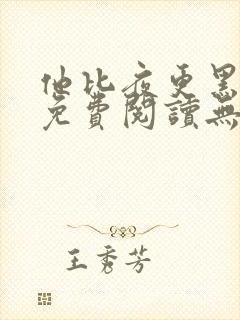 他比夜更黑
免費閱讀無
王秀芳